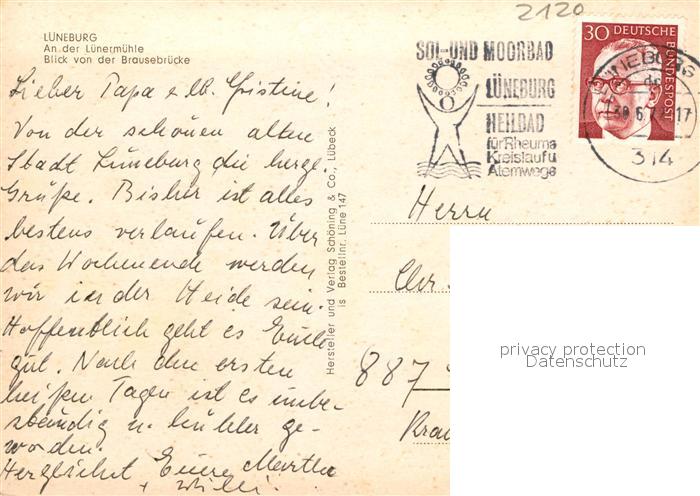 2120
LÜNEBURG
An der Lünermühle
Blick von der Brausebrücke
Lieber Papa u. lb. Christine!
Von der schönen alten
Stadt Lüneburg die herzl.
Grüße. Bisher ist alles
bestens verlaufen. Über
das Wochenende werden
wir in der Heide sein.
Hoffentlich geht es Euch
gut. Nach den ersten
heißen Tagen ist es unbe-
ständig u. kühler ge-
worden.
Herzlichst Euere Martha
+ Willi.
Hersteller und Verlag Schöning & Co., Lübeck
is Bestellnr. Lüne 147
SOL-UND MOORBAD
LÜNEBURG
HEILBAD
für Rheuma
Kreislauf u
Atemwege
30 DEUTSCHE
BUNDESPOST
LÜNEBURG
314
Herrn
Chr.
887
privacy protection
Datenschutz